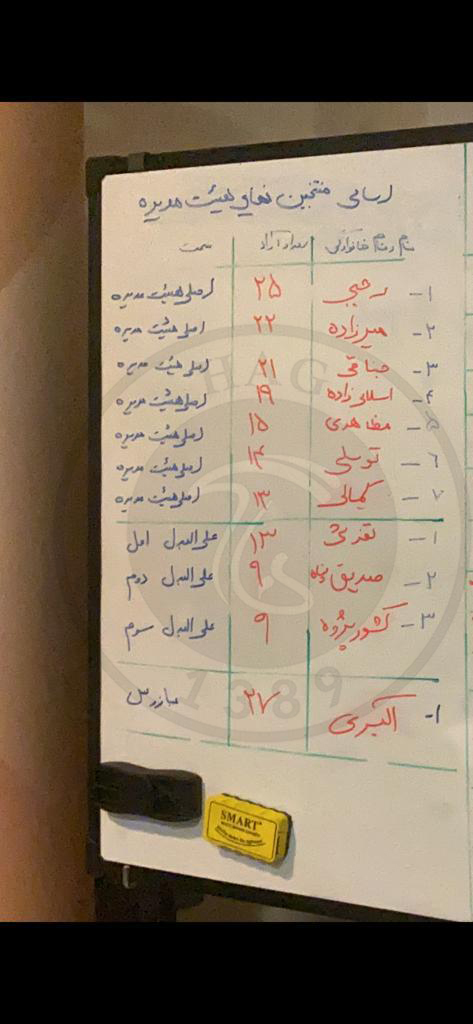 اسامی منتخبین نهایی هیئت مدیره
نام و نام خانوادگی تعداد آراء سمت
۱- رجبی ۲۵ اصلی هیئت مدیره
۲- میرزاده ۲۲ اصلی هیئت مدیره
۳- ۲۱ اصلی هیئت مدیره
۴- اسلامی زاده ۱۹ اصلی هیئت مدیره
۵- مظاهری ۱۵ اصلی هیئت مدیره
۶- توسلی ۱۴ اصلی هیئت مدیره
۷- کمالی ۱۳ اصلی هیئت مدیره
۱- ۱۳ علی البدل اول
۲- صدیق ۹ علی البدل دوم
۳- کشور پژوه ۹ علی البدل سوم
۱- اکبری ۲۷ بازرس
HAG
1389
SMART